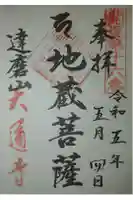 奉拝
令和五年
五月四日
地蔵菩薩
達磨山大通寺